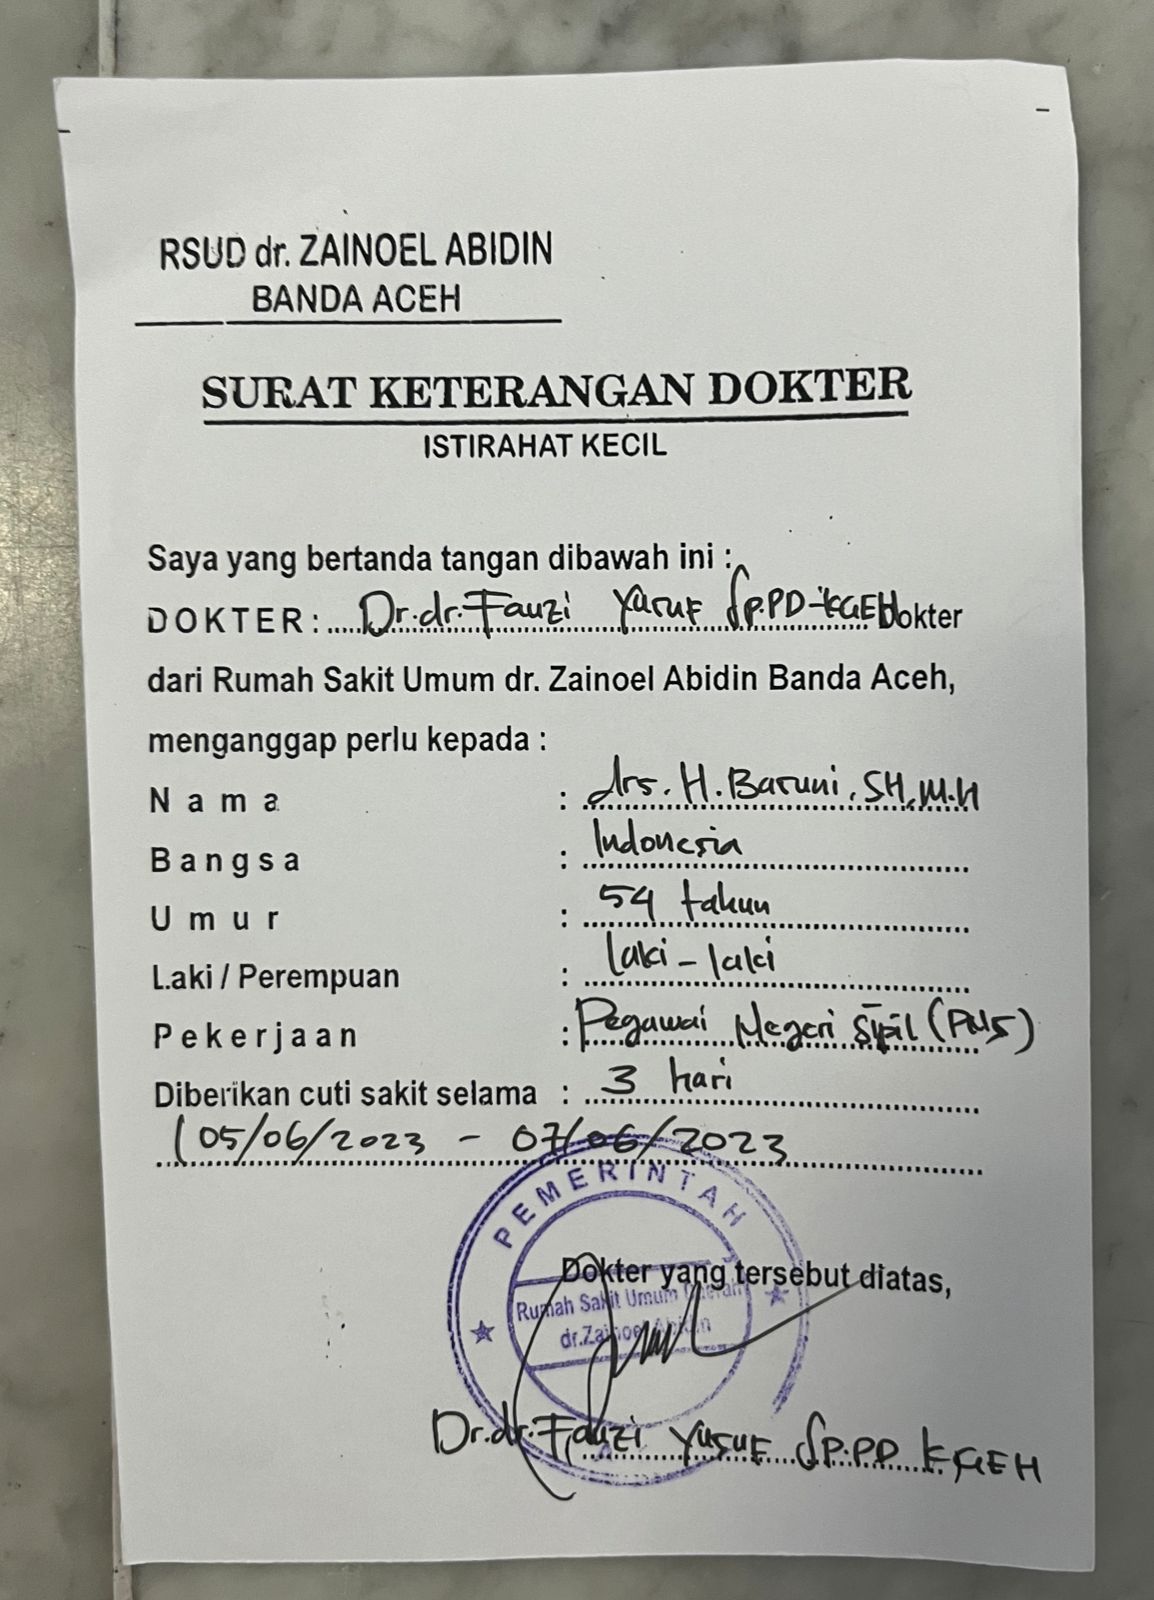 RSUD dr. ZAINOEL ABIDIN
BANDA ACEH
SURAT KETERANGAN DOKTER
ISTIRAHAT KECIL
Saya yang bertanda tangan dibawah ini :
DOKTER: Dr.dr.Fauzi Yusuf Sp.PD-KGEH Dokter
dari Rumah Sakit Umum dr. Zainoel Abidin Banda Aceh,
menganggap perlu kepada :
Nama : drs. H. Baruni, SH, M.H
Bangsa : Indonesia
Umur : 54 tahun
Laki / Perempuan : laki-laki
Pekerjaan : Pegawai Negeri Sipil (PNS)
Diberikan cuti sakit selama : 3 hari
(05/06/2023 - 07/06/2023
PEMERINTAH
Dokter yang tersebut diatas,
Rumah Sakit Umum Daerah
dr.Zainoel Abidin
Dr.dr.Fauzi Yusuf Sp.PD KGEH